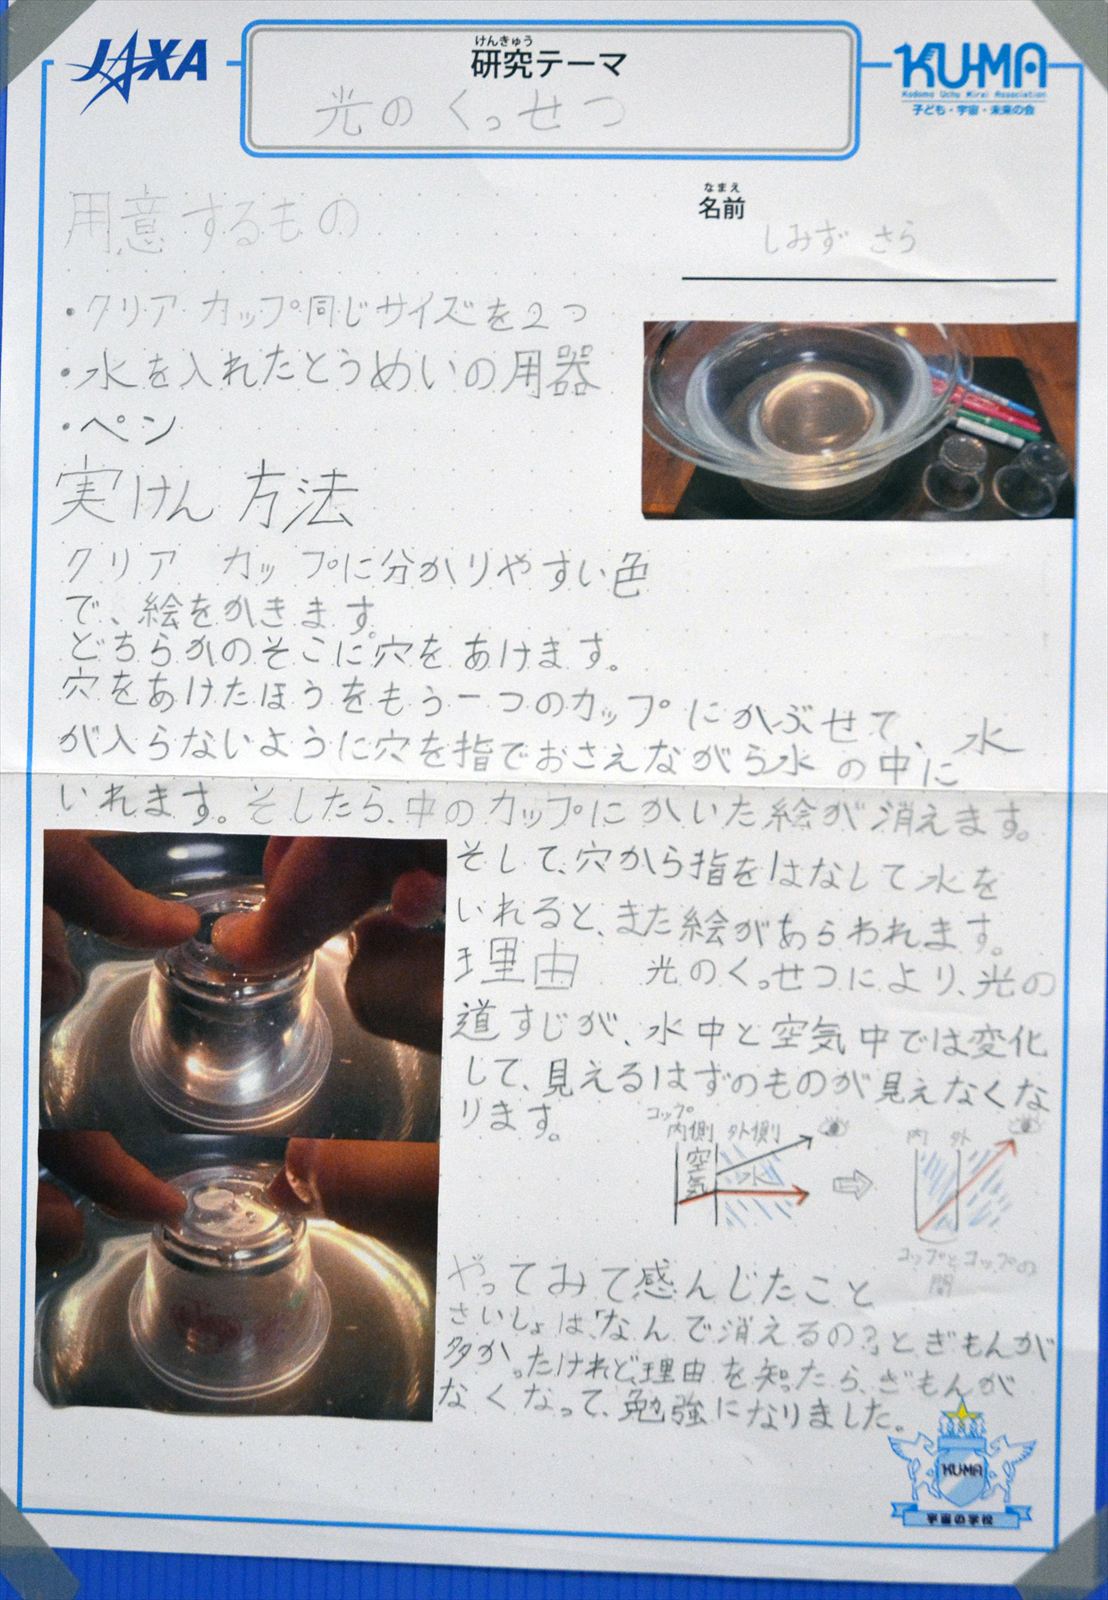 JAXA
けんきゅう
研究テーマ
光のくっせつ
KU-MA
Kodomo Uchu Mirai Association
子ども・宇宙・未来の会
なまえ
名前
しみず さら
用意するもの
・クリア カップ同じサイズを2つ
・水を入れたとうめいの用器
・ペン
実けん方法
クリア カップに分かりやすい色
で、絵をかきます。
どちらかのそこに穴をあけます。
穴をあけたほうをもう一つのカップにかぶせて、水
が入らないように穴を指でおさえながら水の中に
いれます。そしたら、中のカップにかいた絵が消えます。
そして、穴から指をはなして水を
いれると、また絵があらわれます。
理由 光のくっせつにより、光の
道すじが、水中と空気中では変化
して、見えるはずのものが見えなくな
ります。
コップ
内側 外側
空気
水
内 外
コップとコップの
間
やってみて感んじたこと
さいしょは、「なんで消えるの?」とぎもんが
多かったけれど、理由を知ったら、ぎもんが
なくなって、勉強になりました。
KU-MA
宇宙の学校